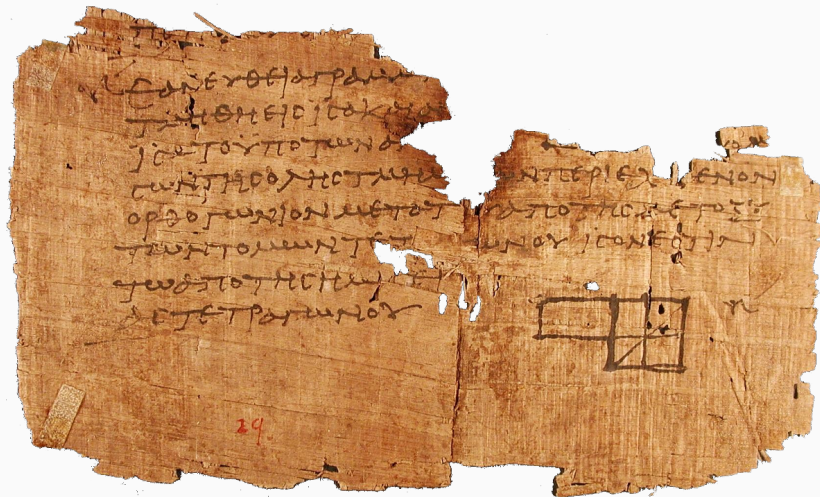 ΕΑΝΕΥΘΕΙΑΓΡΑΜ
ΤΜΗΘΗΕΙCΙCΑΚΑΙΑ
ΙCΑΤΟΥΠΟΤΩΝΑ
CΩΝΤΗCΟΛΗCΤΜΗΜ ΩΝΠΕΡΙΕΧ ΜΕΝΟΝ
ΟΡΘΟΓΩΝΙΟΝΜΕΤΟΤ ΑΠΟΤΗCΜΕΤΟΞΥ
ΤΩΝΤΟΜΩΝΤΕΤ ΩΝΟΥΙCΟΝΕCΤΙΝ
ΤΩΑΠΟΤΗCΗΜΙCΕΙ
ΑCΤΕΤΡΑΓΩΝΟΥ
29